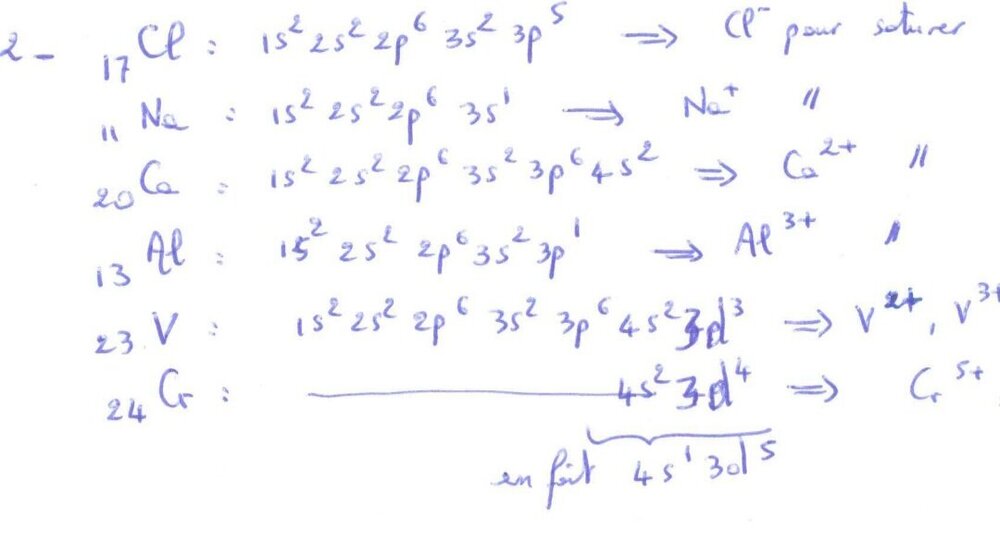 2 - ₁₇Cl : 1s² 2s² 2p⁶ 3s² 3p⁵ ⇒ Cl⁻ pour saturer
₁₁Na : 1s² 2s² 2p⁶ 3s¹ ⇒ Na⁺ "
₂₀Ca : 1s² 2s² 2p⁶ 3s² 3p⁶ 4s² ⇒ Ca²⁺ "
₁₃Al : 1s² 2s² 2p⁶ 3s² 3p¹ ⇒ Al³⁺ "
₂₃V : 1s² 2s² 2p⁶ 3s² 3p⁶ 4s² 3d³ ⇒ V²⁺, V³⁺
₂₄Cr : 4s² 3d⁴ ⇒ Cr⁵⁺
en fait 4s¹ 3d⁵